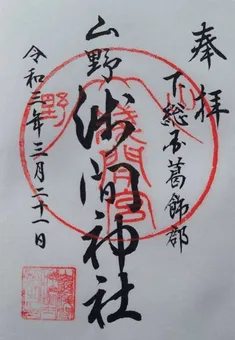 奉拝
下総国葛飾郡
山野
浅間神社
令和三年三月二十一日